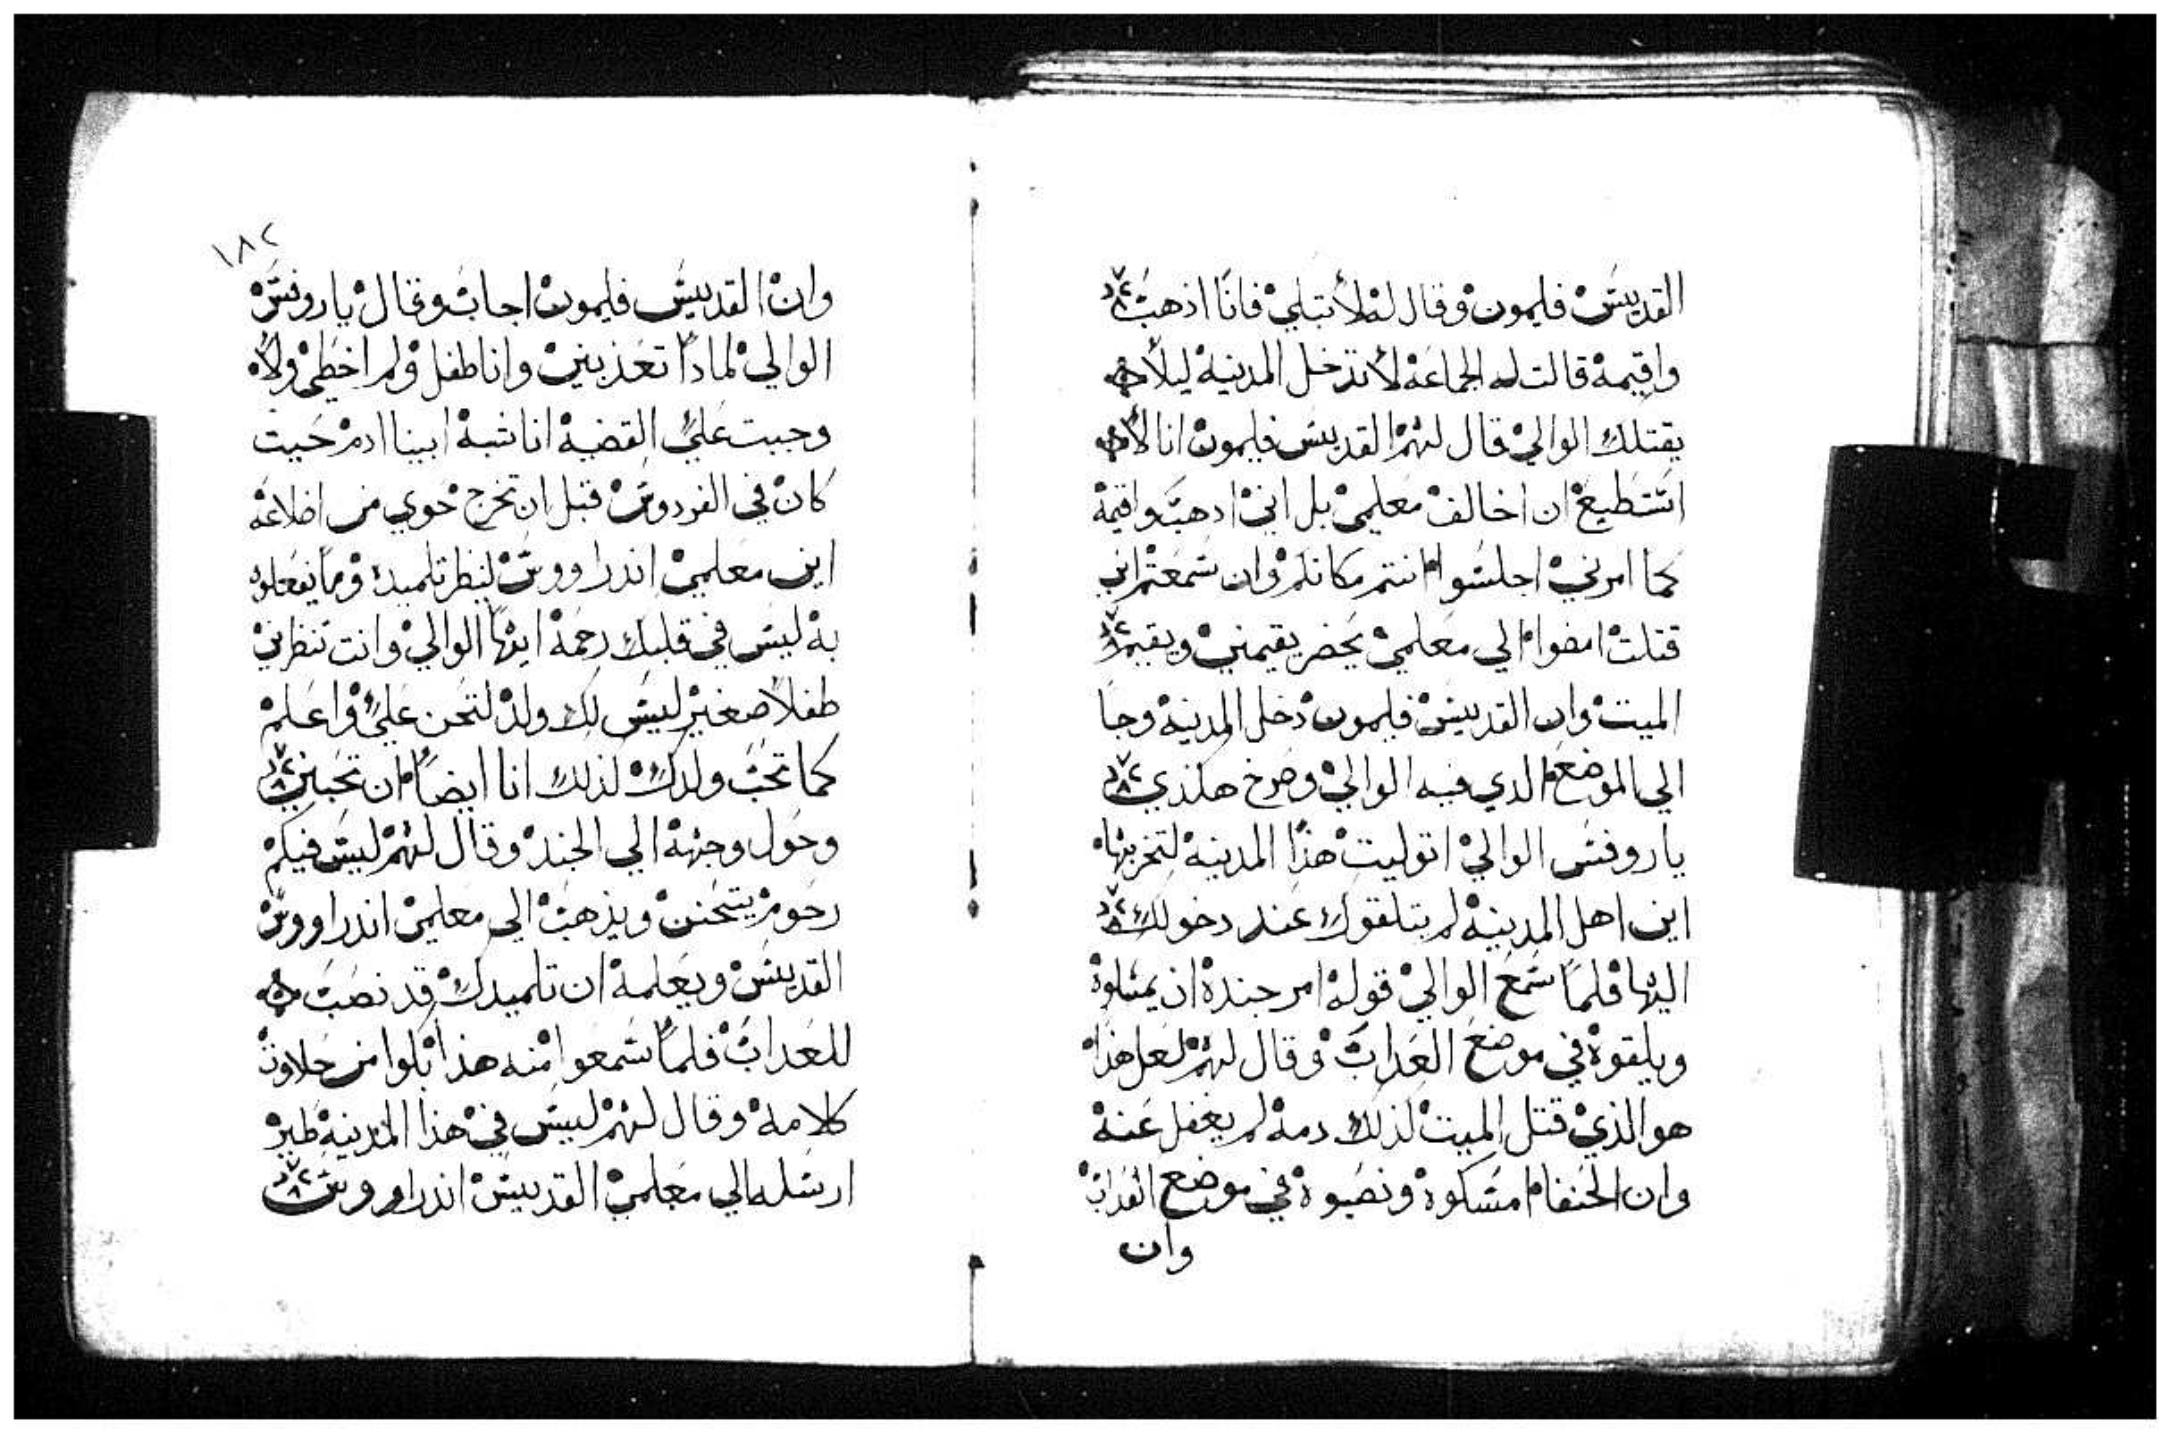 القديس فليمون وقال له لا تبكي فانا اذهب
واقيمه قالت له الجماعه لا تدخل المدينه ليلا
يقتلك الوالي قال لهم القديس فليمون انا لا
استطيع ان اخالف معلمي بل اني ادهب واقيمه
كما امرني اجلسوا انتم مكانكم وان سمعتم اني
قتلت امضوا الي معلمي يحضر يقيمني ويقيم
الميت وان القديس فليمون دخل المدينه وجا
الي الموضع الدي فيه الوالي وصرخ هكذي
يا روفس الوالي اتوليت هذا المدينه لتخربها
اين اهل المدينه لم يتلقوك عند دخولك
اليها فلما سمع الوالي قوله امر جنده ان يمسكوه
ويلقوه في موضع العداب وقال لهم لعل هذا
هو الذي قتل الميت لذلك دمه لم يغفل عنه
وان الحنفا امسكوه ونصبوه في موضع العداب
وان
١٨٢
وان القديس فليمون اجاب وقال يا روفس
الوالي لمادا تعذبني وانا طفل ولم اخطي ولا
وجبت علي القضيه انا شبه ابينا ادم حيت
كان في الفردوس قبل ان تخرج حوي من اضلاعه
اين معلمي اندراووس لينظر تلميده وما يفعلوه
به ليس في قلبك رحمه ايها الوالي وانت تنظرني
طفلا صغير ليس لك ولد لتحن علي واعلم
كما تحب ولدك كذلك انا ايضا ان تحبني
وحول وجهه الي الجند وقال لهم ليس فيكم
رحوم يتحنن ويذهب الي معلمي اندراووس
القديس ويعلمه ان تلميدك قد نصب
للعداب فلما سمعوا منه هذا بكوا من حلاوة
كلامه وقال لهم ليس في هذا المدينه طير
ارسله الي معلمي القديس اندراووس